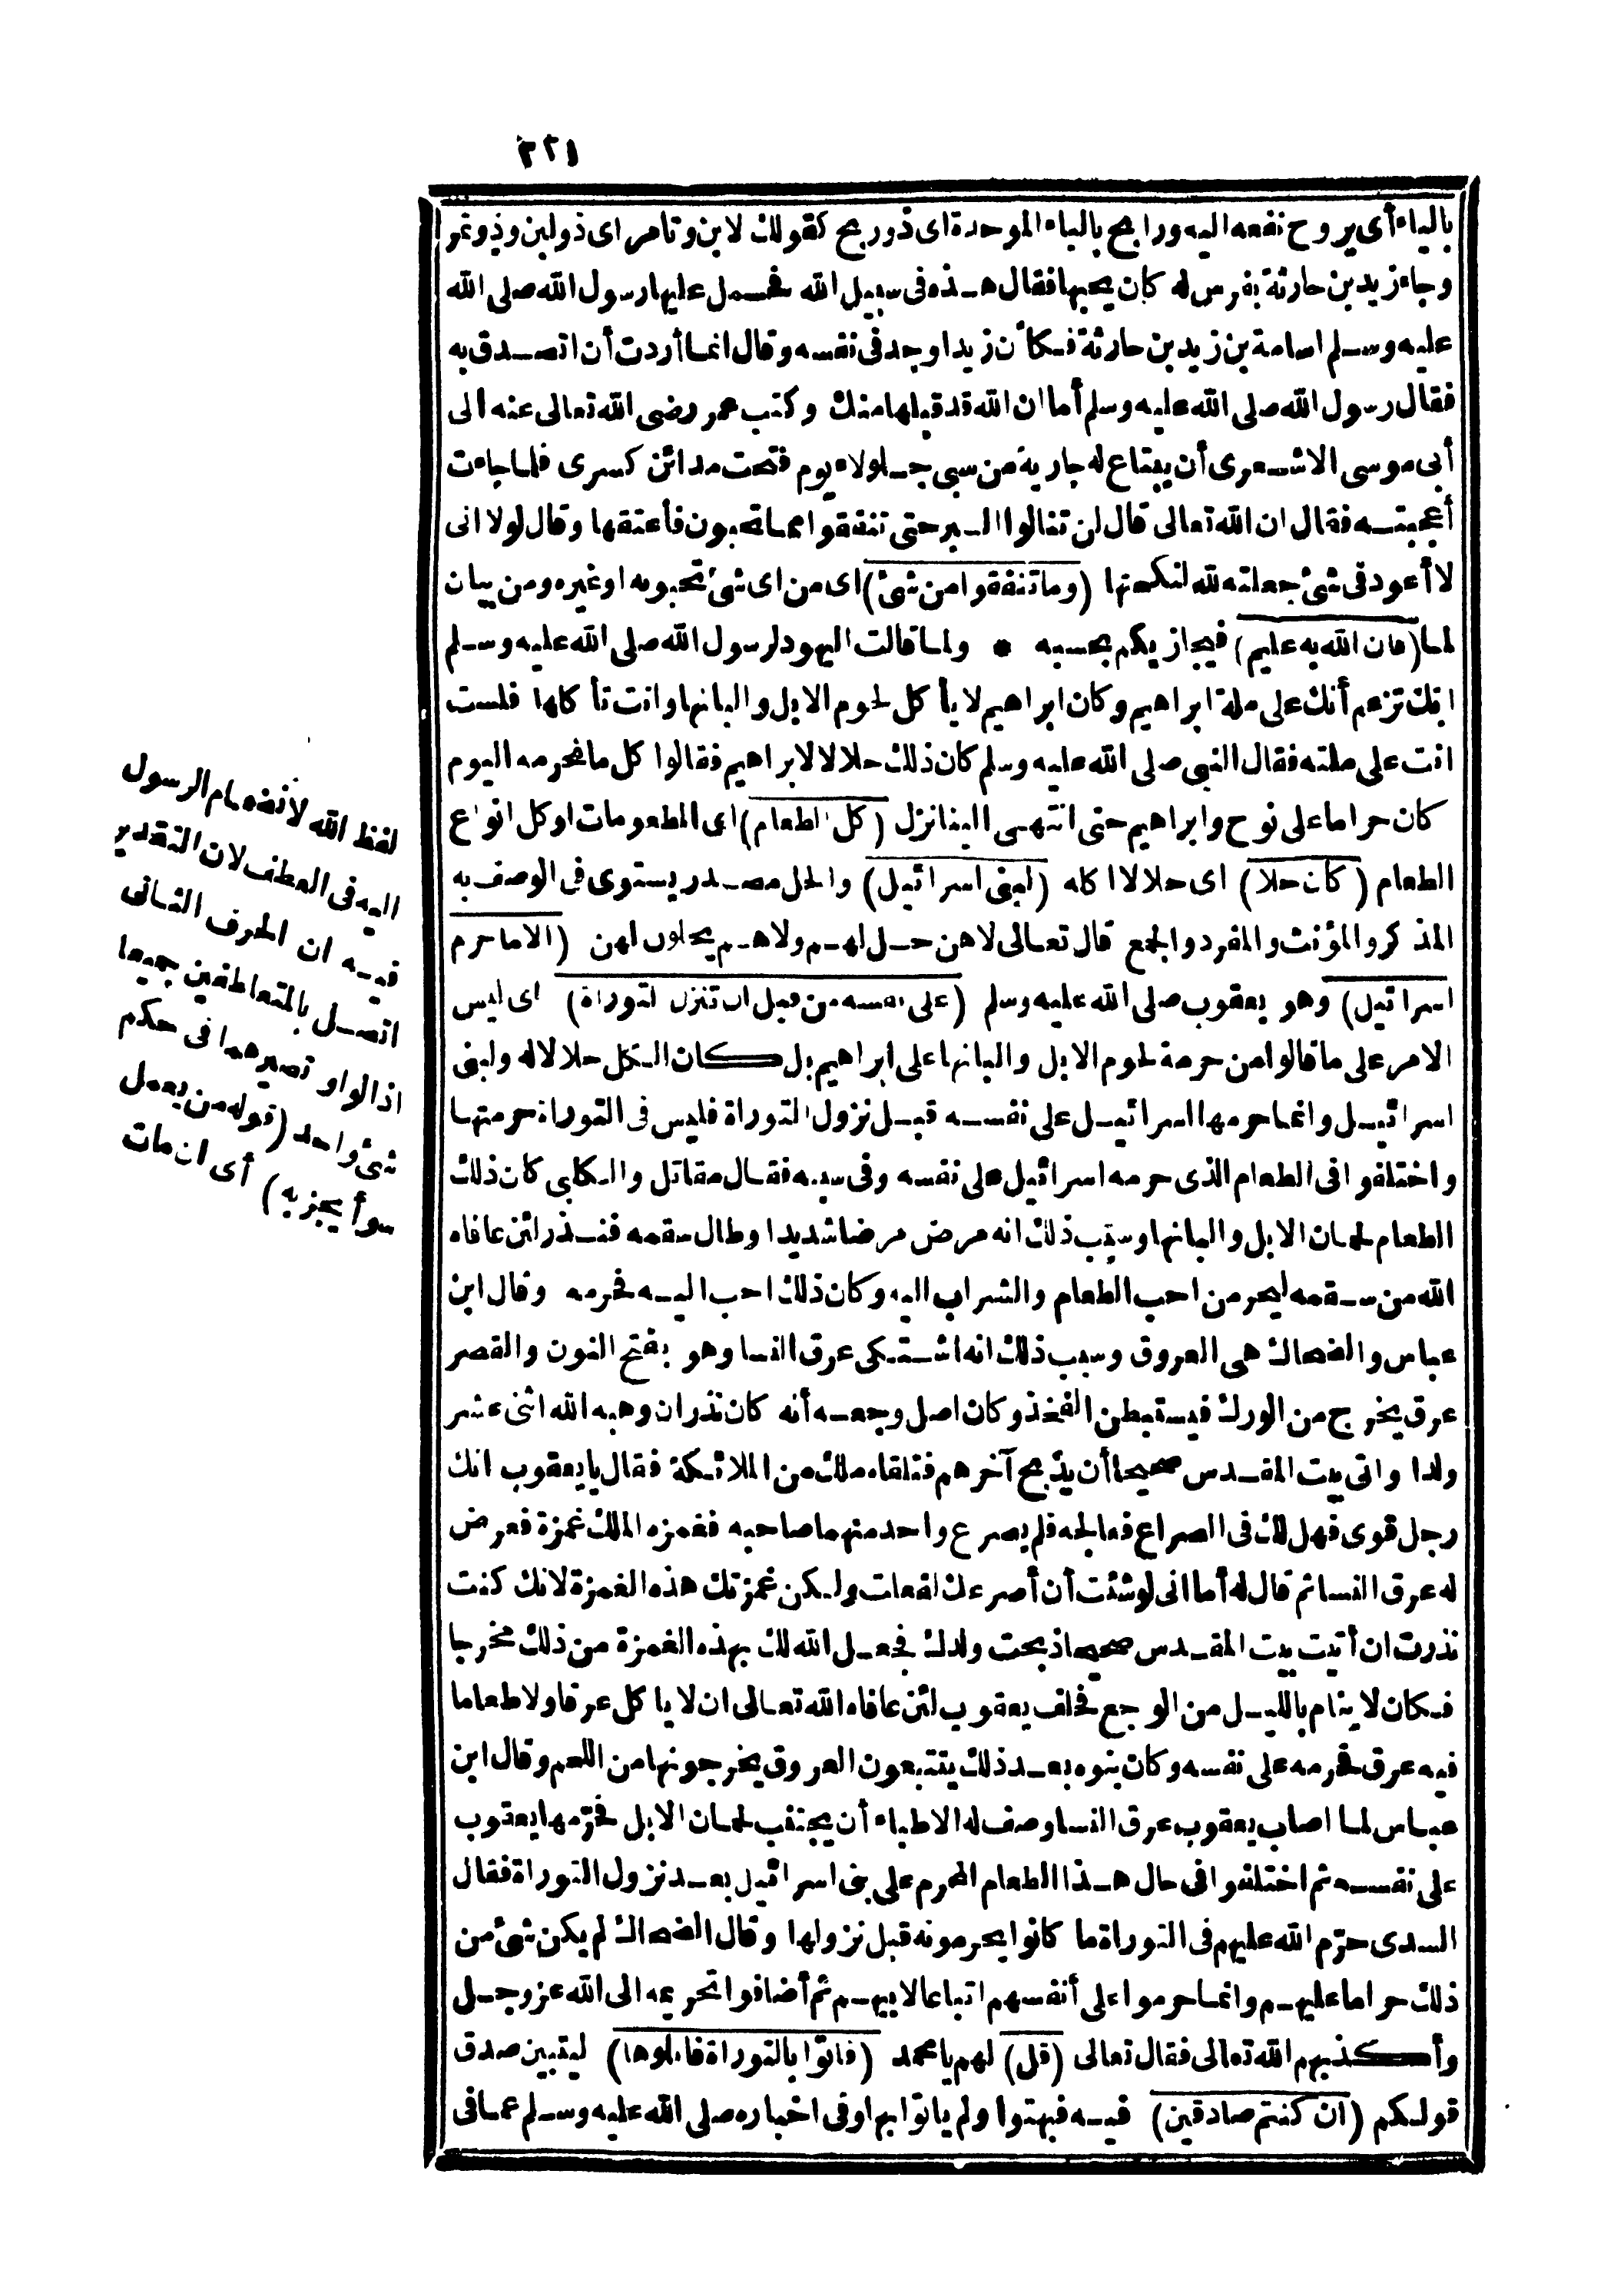 ٢٢١
بالياء أى يروح نفعه اليه ورابح بالباء الموحدة اى ذو ربح كقولك لابن وتامر اى ذو لبن وذو تمر
وجاء زيد بن حارثة بفرس له كان يحبها فقال هذه فى سبيل الله فحمل عليها رسول الله صلى الله
عليه وسلم اسامة بن زيد بن حارثة فكأن زيدا وجد فى نفسه وقال انما أردت أن اتصدق به
فقال رسول الله صلى الله عليه وسلم أما ان الله قد قبلها منك وكتب عمر رضى الله تعالى عنه الى
أبى موسى الاشعرى أن يبتاع له جارية من سبى جلولاء يوم فتحت مدائن كسرى فلما جاءت
أعجبته فقال ان الله تعالى قال لن تنالوا البر حتى تنفقوا مما تحبون فأعتقها وقال لولا انى
لا أعود فى شئ جعلته لله لنكحتها (وما تنفقوا من شئ) اى من اى شئ تحبونه او غيره ومن بيان
لما (فان الله به عليم) فيجازيكم بحسبه • ولما قالت اليهود لرسول الله صلى الله عليه وسلم
انك تزعم أنك على ملة ابراهيم وكان ابراهيم لا يأكل لحوم الابل والبانها وانت تأكلها فلست
انت على ملته فقال النبى صلى الله عليه وسلم كان ذلك حلالا لابراهيم فقالوا كل ما نحرمه اليوم
كان حراما على نوح وابراهيم حتى انتهى الينا نزل (كل الطعام) اى المطعومات او كل انواع
الطعام (كان حلا) اى حلالا اكله (لبنى اسرائيل) والحل مصدر يستوى فى الوصف به
المذكر والمؤنث والمفرد والجمع قال تعالى لا هن حل لهم ولا هم يحلون لهن (الا ما حرم
اسرائيل) وهو يعقوب صلى الله عليه وسلم (على نفسه من قبل ان تنزل التوراة) اى ليس
الامر على ما قالوا من حرمة لحوم الابل والبانها على ابراهيم بل كان الكل حلالا له ولبنى
اسرائيل وانما حرمها اسرائيل على نفسه قبل نزول التوراة فليس فى التوراة حرمتها
واختلفوا فى الطعام الذى حرمه اسرائيل على نفسه وفى سببه فقال مقاتل والكلبى كان ذلك
الطعام لحمان الابل والبانها وسبب ذلك انه مرض مرضا شديدا وطال سقمه فنذر لئن عافاه
الله من سقمه ليحرمن احب الطعام والشراب اليه وكان ذلك احب اليه فحرمه وقال ابن
عباس والضحاك هى العروق وسبب ذلك انه اشتكى عرق النسا وهو بفتح النون والقصر
عرق يخرج من الورك فيستبطن الفخذ وكان اصل وجعه أنه كان نذر ان وهبه الله اثنى عشر
ولدا واتى بيت المقدس صحيحا أن يذبح آخرهم فتلقاه ملك من الملائكة فقال يا يعقوب انك
رجل قوى فهل لك فى الصراع فعالجه فلم يصرع واحد منهما صاحبه فغمزه الملك غمزة فعرض
له عرق النسا ثم قال له أما انى لو شئت أن أصرعك لفعلت ولكن غمزتك هذه الغمزة لانك كنت
نذرت ان أتيت بيت المقدس صحيحا ذبحت ولدك فجعل الله لك بهذه الغمزة من ذلك مخرجا
فكان لا ينام بالليل من الوجع فحلف يعقوب لئن عافاه الله تعالى ان لا ياكل عرقا ولا طعاما
فيه عرق فحرمه على نفسه وكان بنوه بعد ذلك يتتبعون العروق يخرجونها من اللحم وقال ابن
عباس لما اصاب يعقوب عرق النسا وصف له الاطباء أن يجتنب لحمان الابل فحرّمها يعقوب
على نفسه ثم اختلفوا فى حال هذا الطعام المحرم على بنى اسرائيل بعد نزول التوراة فقال
السدى حرّم الله عليهم فى التوراة ما كانوا يحرمونه قبل نزولها وقال الضحاك لم يكن شئ من
ذلك حراما عليهم وانما حرموا على أنفسهم اتباعا لابيهم ثم أضافوا تحريمه الى الله عز وجل
وأكذبهم الله تعالى فقال تعالى (قل) لهم يا محمد (فاتوا بالتوراة فاتلوها) ليتبين صدق
قولكم (ان كنتم صادقين) فيه فبهتوا ولم ياتوا بها وفى اخباره صلى الله عليه وسلم عما فى
لفظ الله لانضمام الرسول
اليه فى العطف لان التقدير
فيه ان الحرف الثانى
اتصل بالمتعاطفين جميعا
اذ الواو تصيرهما فى حكم
شئ واحد (قوله من يعمل
سوأ يجز به) أى ان مات